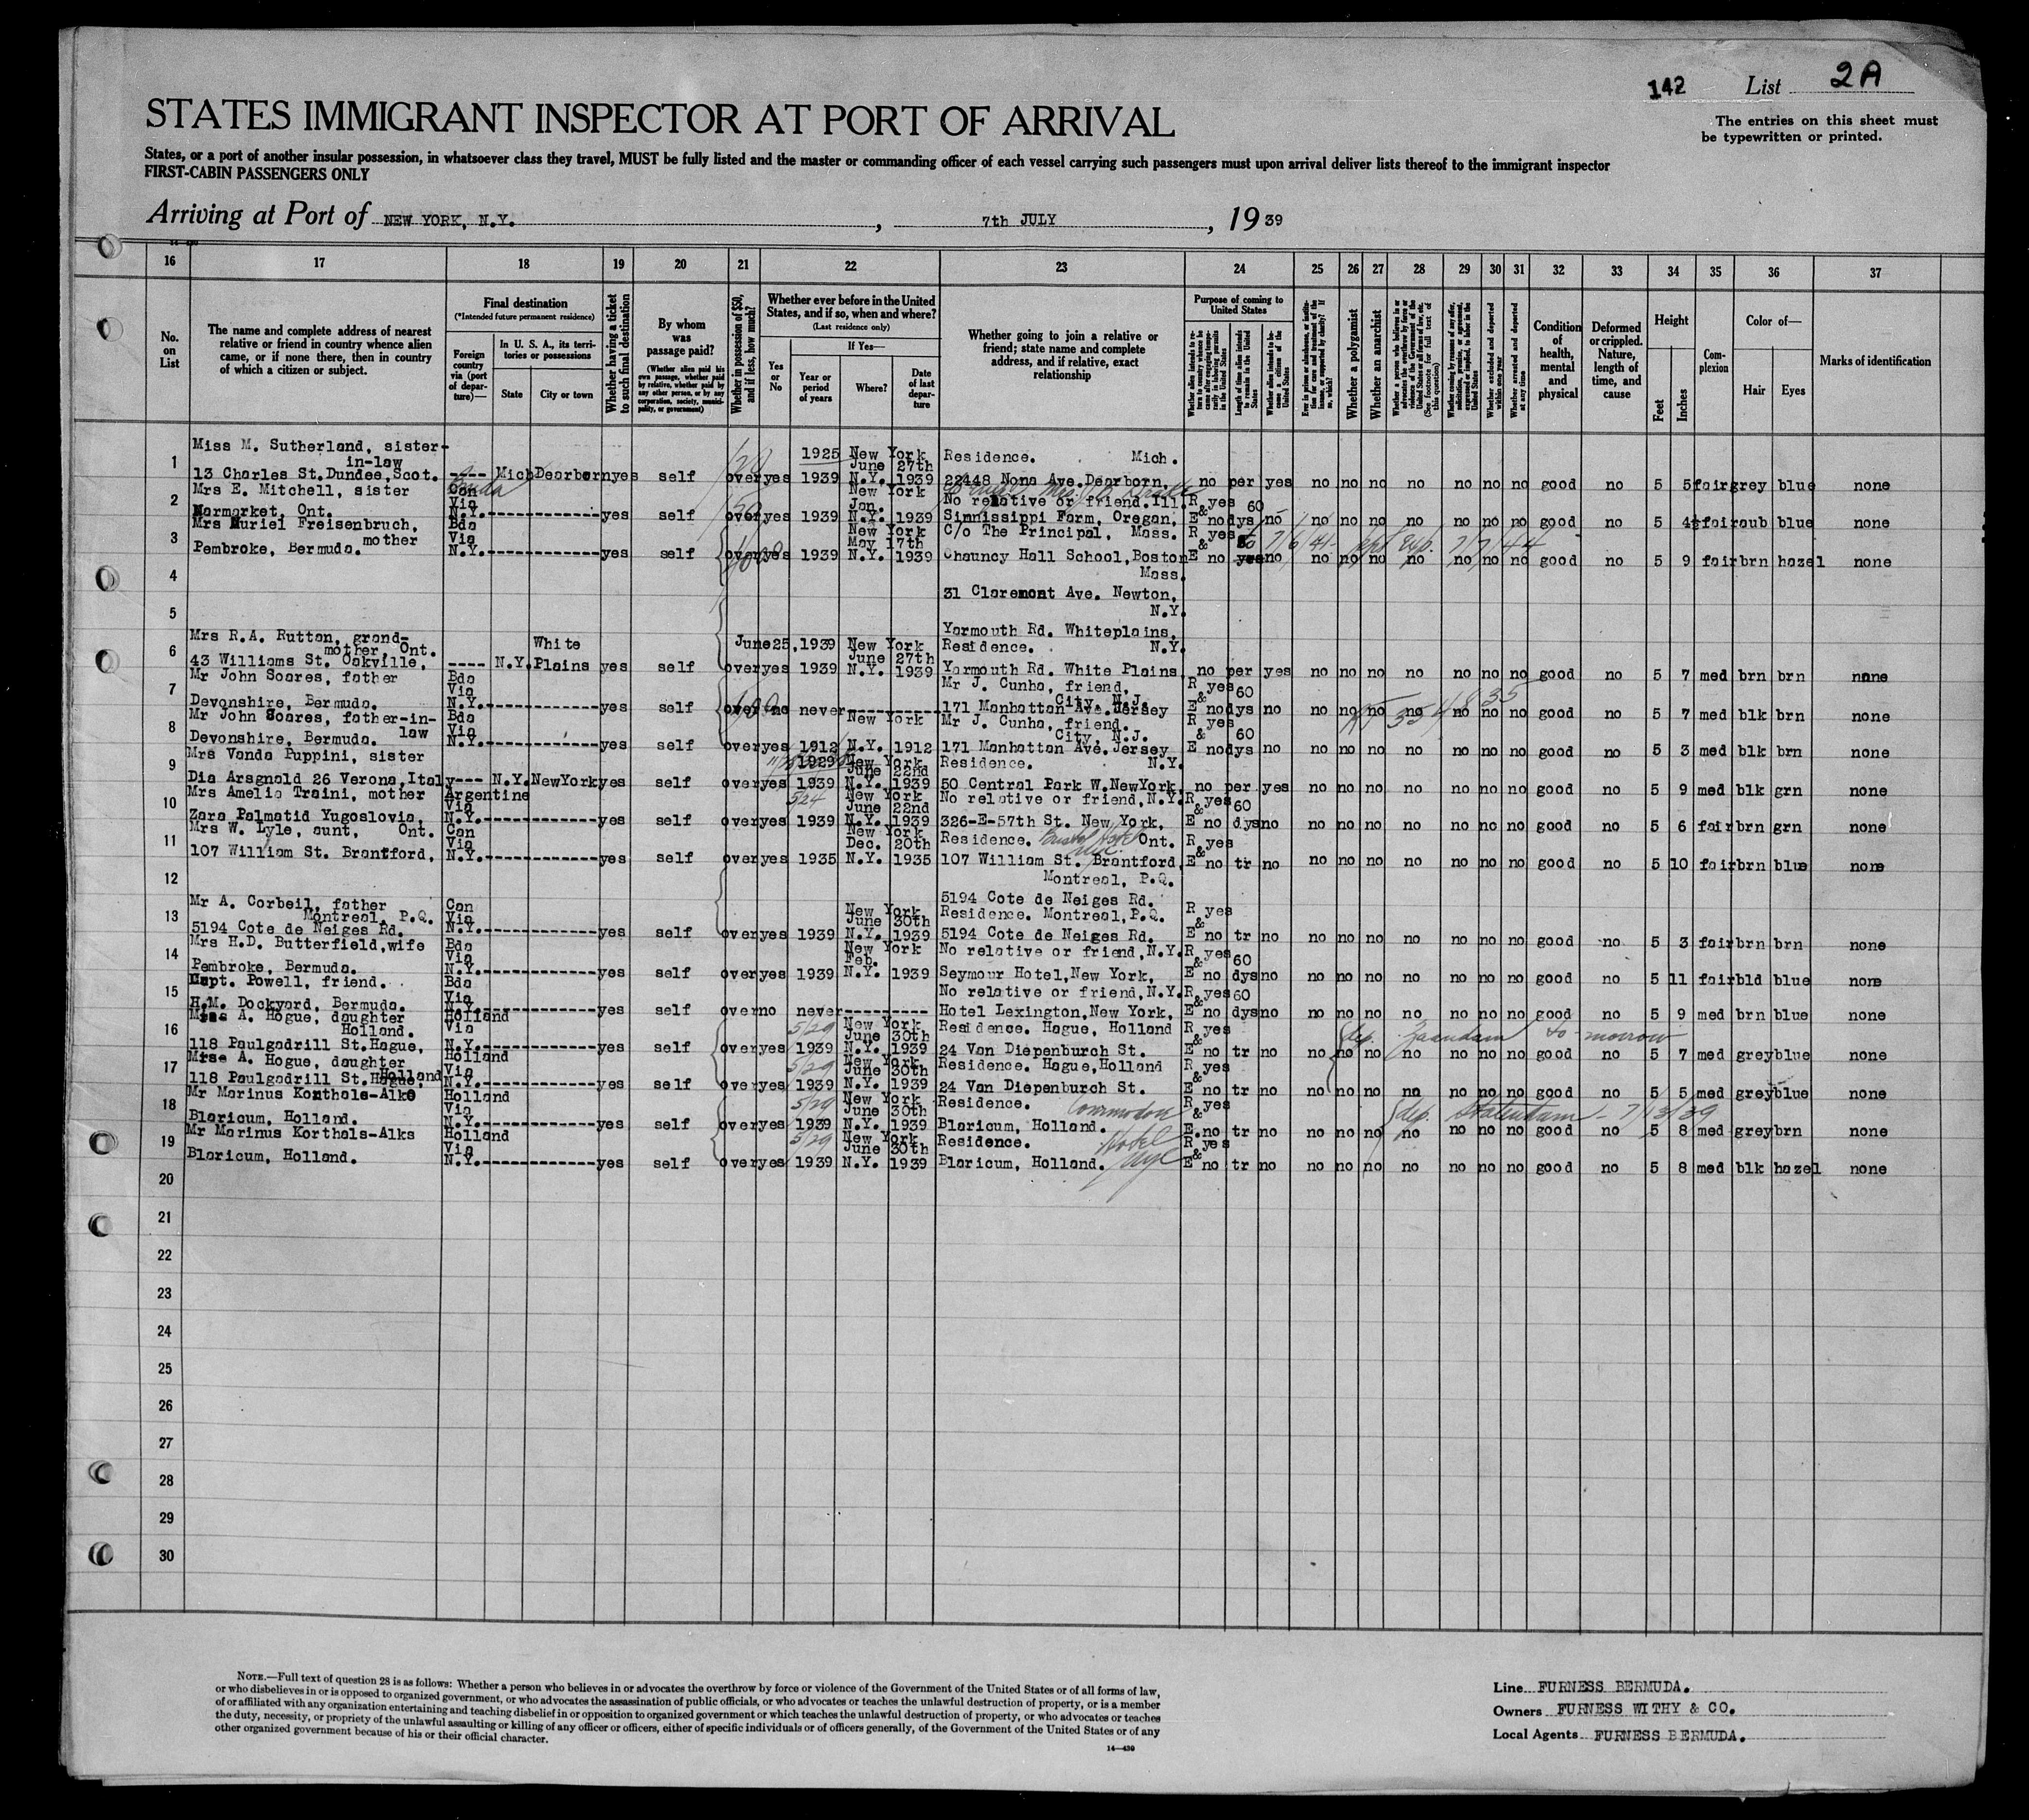 142 List 2A
STATES IMMIGRANT INSPECTOR AT PORT OF ARRIVAL
The entries on this sheet must
be typewritten or printed.
States, or a port of another insular possession, in whatsoever class they travel, MUST be fully listed and the master or commanding officer of each vessel carrying such passengers must upon arrival deliver lists thereof to the immigrant inspector
FIRST-CABIN PASSENGERS ONLY
Arriving at Port of NEW YORK, N.Y. , 7th JULY , 19 39
16 17 18 19 20 21 22 23 24 25 26 27 28 29 30 31 32 33 34 35 36 37
No. on List
The name and complete address of nearest relative or friend in country whence alien came, or if none there, then in country of which a citizen or subject.
Final destination
(*Intended future permanent residence)
Foreign country via (port of departure)—
In U. S. A., its territories or possessions
State City or town
Whether having a ticket to such final destination
By whom was passage paid?
(Whether alien paid his own passage, whether paid by relative, whether paid by any other person, or by any corporation, society, municipality, or government)
Whether in possession of $50, and if less, how much?
Whether ever before in the United States, and if so, when and where?
(Last residence only)
Yes or No
If Yes—
Year or period of years Where? Date of last departure
Whether going to join a relative or friend; state name and complete address, and if relative, exact relationship
Purpose of coming to United States
Length of time alien intends to remain in the United States
Whether alien intends to become a citizen of the United States
Whether a polygamist
Whether an anarchist
Whether excluded and deported within one year
Whether arrested and deported at any time
Condition of health, mental and physical
Deformed or crippled. Nature, length of time, and cause
Height
Feet Inches
Complexion
Color of—
Hair Eyes
Marks of identification
1 Miss M. Sutherland, sister-in-law 13 Charles St.Dundee,Scot. ---- Mich Dearborn yes self over yes 1925 1939 New York N.Y. June 27th 1939 Residence. Mich. 22448 Nona Ave.Dearborn, no per yes no no no no no no no good no 5 5 fair grey blue none
2 Mrs E. Mitchell, sister Narmarket, Ont. Can Via N.Y. yes self over yes 1939 New York N.Y. Jan. 1939 No relative or friend.Ill. Sinnissippi Farm, Oregon, R yes & E no 60 dys no no no no no no no no good no 5 4½ fair aub blue none
3 Mrs Muriel Freisenbruch, mother Pembroke, Bermuda. Bda Via N.Y. yes self over yes 1939 New York N.Y. May 17th 1939 C/o The Principal, Mass. Chauncy Hall School,Boston R yes & E no no no no no no no no no good no 5 9 fair brn hazel none
4 Mass.
31 Claremont Ave. Newton,
5 N.Y.
Yarmouth Rd. Whiteplains,
6 Mrs R.A. Rutton, grand-mother, Ont. 43 Williams St. Oakville, ---- N.Y. White Plains yes self over yes June 25,1939 1939 New York N.Y. June 27th 1939 Residence. N.Y. Yarmouth Rd. White Plains, no per yes no no no no no no no good no 5 7 med brn brn none
7 Mr John Soares, father Devonshire, Bermuda. Bda Via N.Y. yes self over no never Mr J. Cunha, friend, City, N.J. 171 Manhattan Ave.Jersey R yes & E no 60 dys no no no no no no no no good no 5 7 med blk brn none
8 Mr John Soares, father-in-law Devonshire, Bermuda. Bda Via N.Y. yes self over yes 1912 New York N.Y. 1912 Mr J. Cunha, friend. City, N.J. 171 Manhattan Ave.Jersey R yes & E no 60 dys no no no no no no no no good no 5 3 med blk brn none
9 Mrs Vanda Puppini, sister Dia Arsgnald 26 Verona,Italy --- N.Y. NewYork yes self over yes 1929 1939 New York N.Y. June 22nd 1939 Residence. N.Y. 50 Central Park W.NewYork, no per yes no no no no no no no good no 5 9 med blk grn none
10 Mrs Amelia Traini, mother Zara Palmatid Yugoslovia, Argentine Via N.Y. yes self over yes 5/24 1939 New York N.Y. June 22nd 1939 No relative or friend,N.Y. 326-E-57th St. New York, R yes & E no 60 dys no no no no no no no no good no 5 6 fair brn grn none
11 Mrs W. Lyle, aunt, Ont. 107 William St. Brantford, Can Via N.Y. yes self over yes 1935 New York N.Y. Dec. 20th 1935 Residence. Ont. 107 William St. Brantford R yes & E no tr no no no no no no no no good no 5 10 fair brn blue none
12 Montreal, P.Q.
5194 Cote de Neiges Rd.
13 Mr A. Corbeil, father Montreal, P.Q. 5194 Cote de Neiges Rd. Can Via N.Y. yes self over yes 1939 New York N.Y. June 30th 1939 Residence. Montreal,P.Q. 5194 Cote de Neiges Rd. R yes & E no tr no no no no no no no no good no 5 3 fair brn brn none
14 Mrs H.D. Butterfield,wife Pembroke, Bermuda. Bda Via N.Y. yes self over yes 1939 New York N.Y. Feb. 1939 No relative or friend,N.Y. Seymour Hotel,New York, R yes & E no 60 dys no no no no no no no no good no 5 11 fair bld blue none
15 Capt. Powell, friend. H.M. Dockyard, Bermuda. Bda Via N.Y. yes self over no never No relative or friend,N.Y. Hotel Lexington,New York, R yes & E no 60 dys no no no no no no no no good no 5 9 med brn blue none
16 A. Hogue, daughter Holland. 118 Paulgadrill St.Hague, Holland Via N.Y. yes self over yes 5/29 1939 New York N.Y. June 30th 1939 Residence. Hague, Holland 24 Van Diepenburch St. R yes & E no tr no no no no no no no no good no 5 7 med grey blue none
dep. Zaandam to-morrow
17 A. Hogue, daughter Holland 118 Paulgadrill St.Hague, Holland Via N.Y. yes self over yes 5/29 1939 New York N.Y. June 30th 1939 Residence. Hague,Holland 24 Van Diepenburch St. R yes & E no tr no no no no no no no no good no 5 5 med grey blue none
18 Mr Marinus Korthals-Alke Blaricum, Holland. Holland Via N.Y. yes self over yes 5/29 1939 New York N.Y. June 30th 1939 Residence. Commodore Blaricum, Holland. R yes & E.no tr no no no no no no no no good no 5 8 med grey brn none
dep. Statendam - 7/13/39
19 Mr Marinus Korthals-Alks Blaricum, Holland. Holland Via N.Y. yes self over yes 5/29 1939 New York N.Y. June 30th 1939 Residence. Hotel nyc Blaricum, Holland. R yes & E no tr no no no no no no no no good no 5 8 med blk hazel none
20
21
22
23
24
25
26
27
28
29
30
NOTE.—Full text of question 28 is as follows: Whether a person who believes in or advocates the overthrow by force or violence of the Government of the United States or of all forms of law,
or who disbelieves in or is opposed to organized government, or who advocates the assassination of public officials, or who advocates or teaches the unlawful destruction of property, or is a member
of or affiliated with any organization entertaining and teaching disbelief in or opposition to organized government or which teaches the unlawful destruction of property, or who advocates or teaches
the duty, necessity, or propriety of the unlawful assaulting or killing of any officer or officers, either of specific individuals or of officers generally, of the Government of the United States or of any
other organized government because of his or their official character.
14—430
Line FURNESS BERMUDA.
Owners FURNESS WITHY & CO.
Local Agents FURNESS BERMUDA.